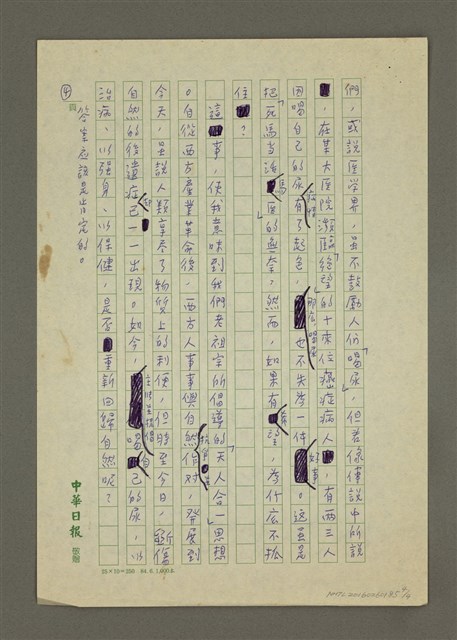 們，或說医学界，虽不鼓勵人们「喝尿」，但若像傳說中所說
，在某大医院瀕臨「絕望」的十來位癌症病人，有兩三人
因喝自己的尿，病情有了起色，那么，喝尿也不失為一件好事。这虽是
把「死馬当活馬医」的無奈，然而，如果有希望，為什庅不抓
住？
這事，使我意味到我們老祖宗所倡導的「天人合一」思想
。自從西方產業革命後，西方人事事與自然作对，發展到
今天，虽說人類享尽了物質上的利便，但時至今日，斲傷
自然的後遺症却已一一出現。如今，喝自己的尿，以
治病、以强身、以保健，是否重新回歸自然呢？
答案应該是肯定的。
④
四
中華日報
25×10=250 84.6.1,000本